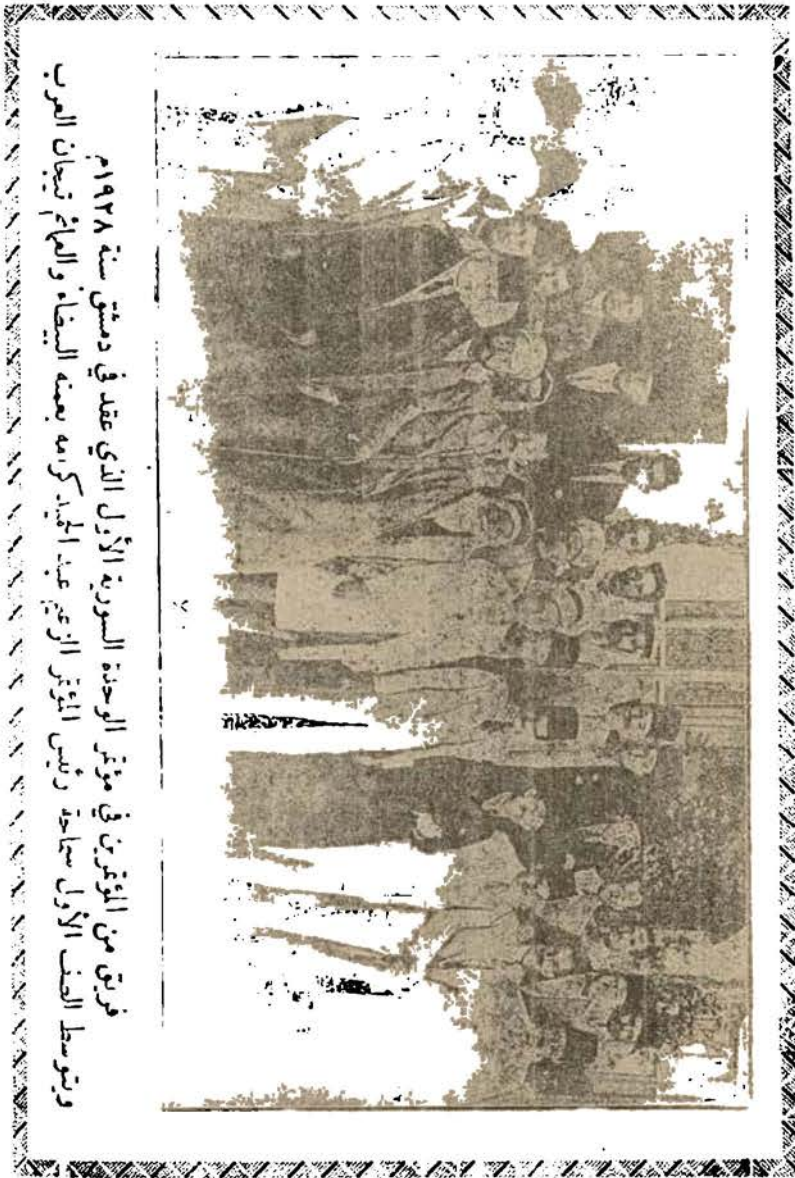 فريق من المؤتمرين في مؤتمر الوحدة السورية الأول الذي عقد في دمشق سنة ١٩٢٨م
ويتوسط الصف الأول سماحة رئيس المؤتمر الزعيم عبد الحميد كرامه بعمته البيضاء والعمائم تيجان العرب